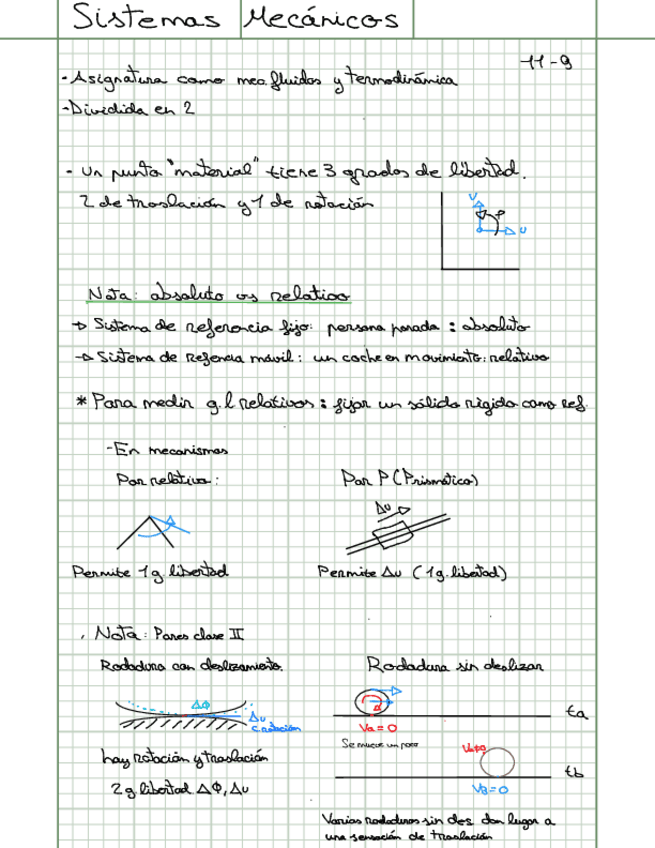 Sistemas Mecánicos
11-9
-Asignatura como mec.fluidos y termodinámica
-Dividida en 2
- Un punto "material" tiene 3 grados de libertad.
2 de traslación y 1 de rotación
V
φ
U
Nota: absoluto vs relativo
→ Sistema de referencia fijo: persona parada : absoluto
→ Sistema de Refencia móvil: un coche en movimiento: relativo
* Para medir g.l relativos : fijar un sólido rígido como ref.
-En mecanismos
Par relativo:
Par P (Prismático)
Δ
Δu
Permite 1 g. libertad
Permite Δu (1 g. libertad)
. Nota: Pares clase II
Rodadura con deslizamiento.
Rodadura sin deslizar
Δϕ
Δu
ta
Va = 0
hay rotación y traslación
Se mueve un poco
tb
2 g. libertad Δϕ, Δu
VB=0
Varias rodaduras sin des. dan lugar a
una sensación de traslación